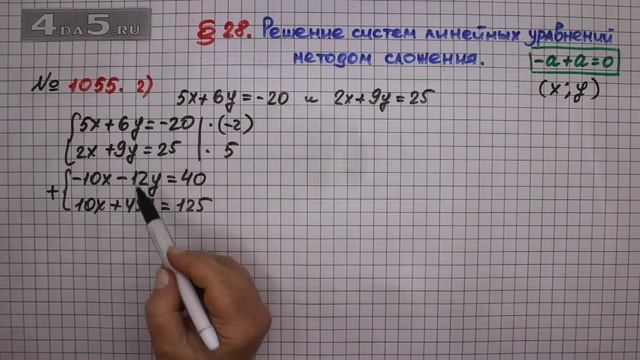 4DA5.RU
§ 28. Решение систем линейных уравнений
методом сложения.
-a+a=0
№ 1055. 2)
5x+6y=-20 и 2x+9y=25
(x; y)
5x+6y=-20 | · (-2)
2x+9y=25 | · 5
+ { -10x-12y=40
10x+45y=125